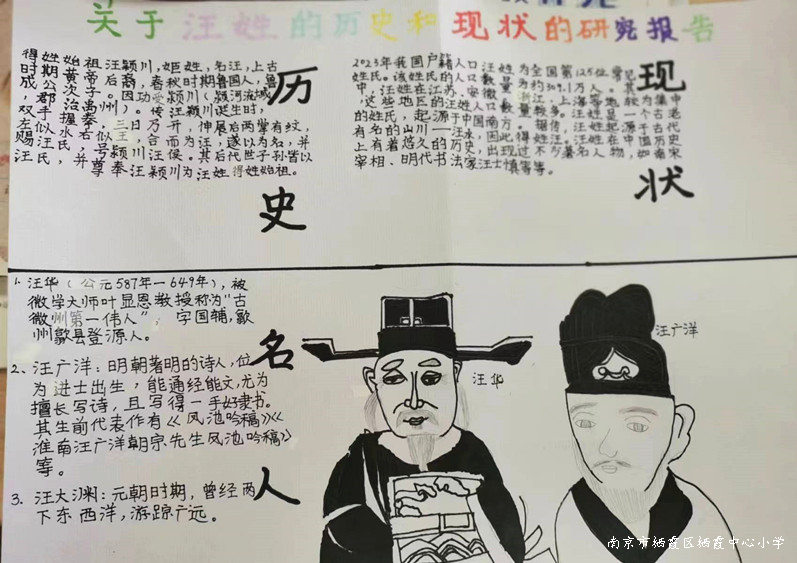 关于汪姓的历史和现状的研究报告
历史
得姓始祖汪颍川，姬姓，名汪，上古
时期黄帝后裔，春秋时期鲁国人，鲁
成公次子。因功受颍川（颍河流域，
郡治禹州）。传汪颍川诞生时，
双手握拳，三日乃开，伸展后两掌有纹，
左似水右似王，合而为汪，遂以为名，并
赐汪氏，号颍川汪侯。其后代世子孙皆以
汪氏，并尊奉汪颍川为汪姓得姓始祖。
现状
2023年我国户籍人口汪姓为全国第125位常见
姓氏。该姓氏的人口数量为约309.1万人。其
中，汪姓在江苏、安微、浙江、上海等地较为集中
，这些地区的汪姓人口数量较多。汪姓是一个古老
的姓氏，起源于中国南方，据传，汪姓起源于古代
有名的山川——汪水，因此得姓汪。汪姓在中国历史
上有着悠久的历史，出现过不少著名人物，如南宋
宰相、明代书法家汪士慎等等。
名人
1、汪华（公元587年—649年），被
微学大师叶显恩教授称为“古
微州第一伟人”，字国辅，歙
州歙县登源人。
2、汪广洋：明朝著明的诗人，位
为进士出生，能通经能文，尤为
擅长写诗，且写得一手好隶书。
其生前代表作有《凤池吟稿》《
淮南汪广洋朝宗先生凤池吟稿》
等。
3、汪大渊：元朝时期，曾经两
下东西洋，游踪广远。
汪华
汪广洋
南京市栖霞区栖霞中心小学